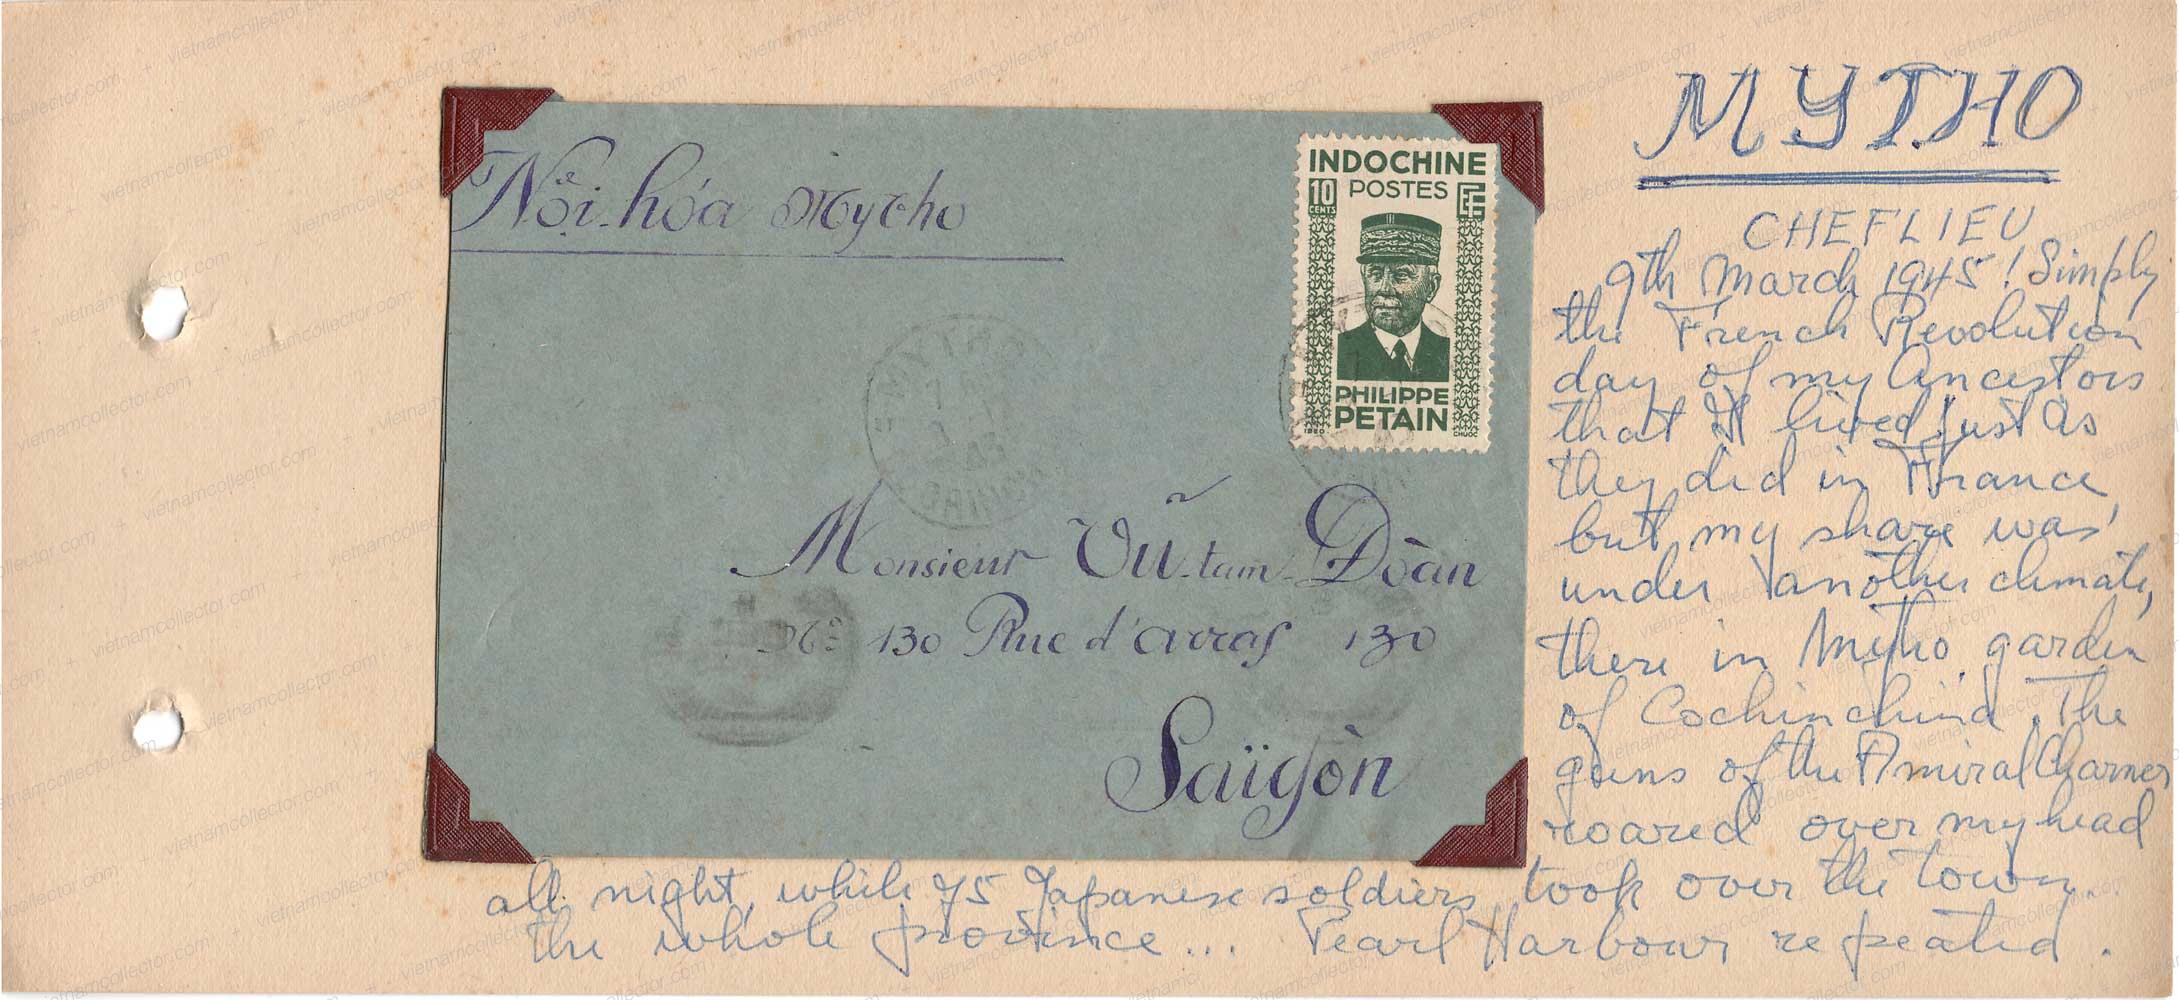 Nội-hóa Mytho
INDOCHINE
10 POSTES
CENTS
PHILIPPE
PETAIN
CHUOC
Monsieur Vũ-tam-Doàn
No 130 Rue d'arras 130
Saïgòn
MYTHO
CHEFLIEU
9th March 1945! Simply
the French Revolution
day of my Ancestors
that I lived just as
they did in France,
but my share was
under another climate,
there in Mytho, garden
of Cochinchina. The
guns of the Amiral Charner
roared over my head
all night, while 75 Japanese soldiers took over the town.
the whole province... Pearl Harbour repeated.
vietnamcollector.com